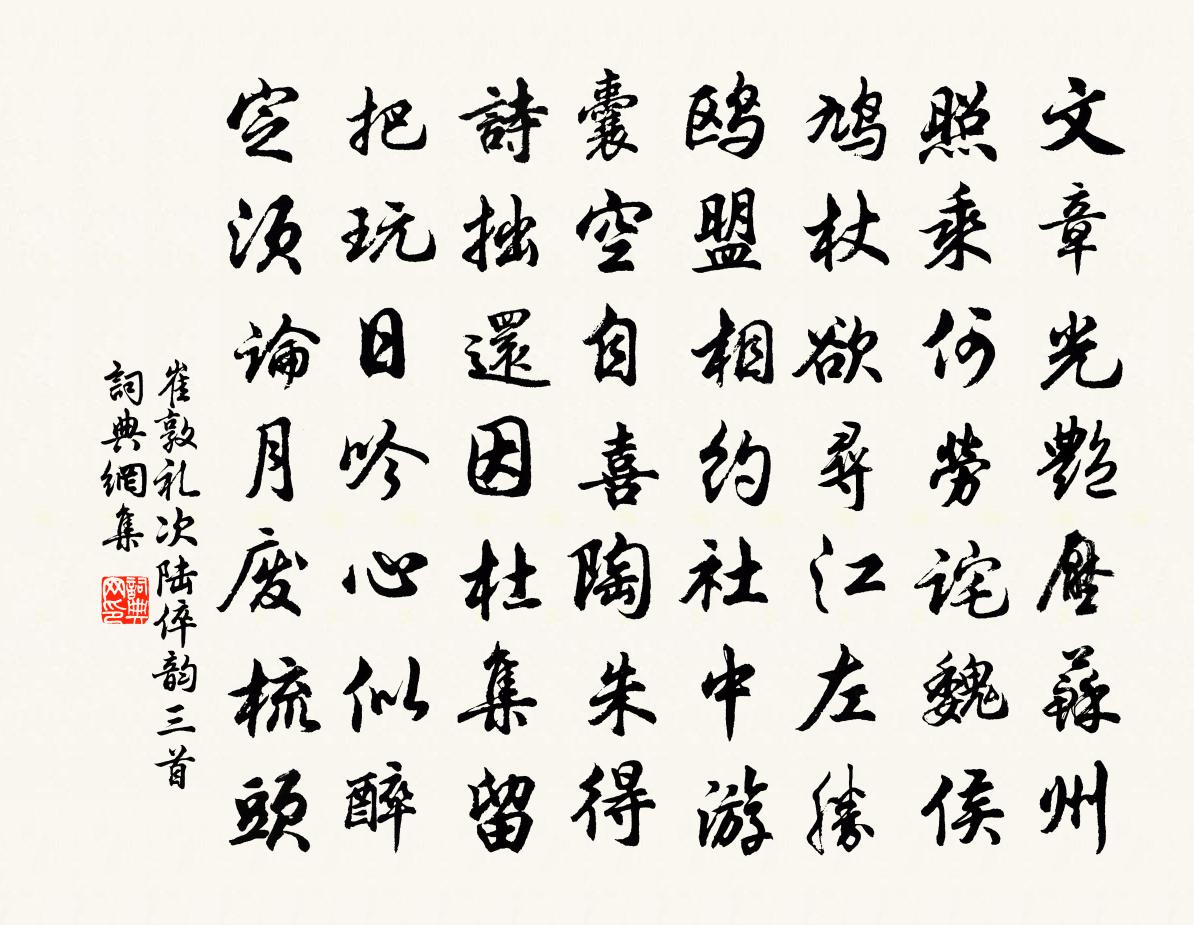 文章光艷壓蘇州
照乘何勞詫魏侯
鳩杖欲尋江左勝
鷗盟相約社中游
囊空自喜陶朱得
詩拙還因杜集留
把玩日吟心似醉
定須論月廢梳頭
崔敦礼次陆倅韵三首
詞典網集
詞典网印